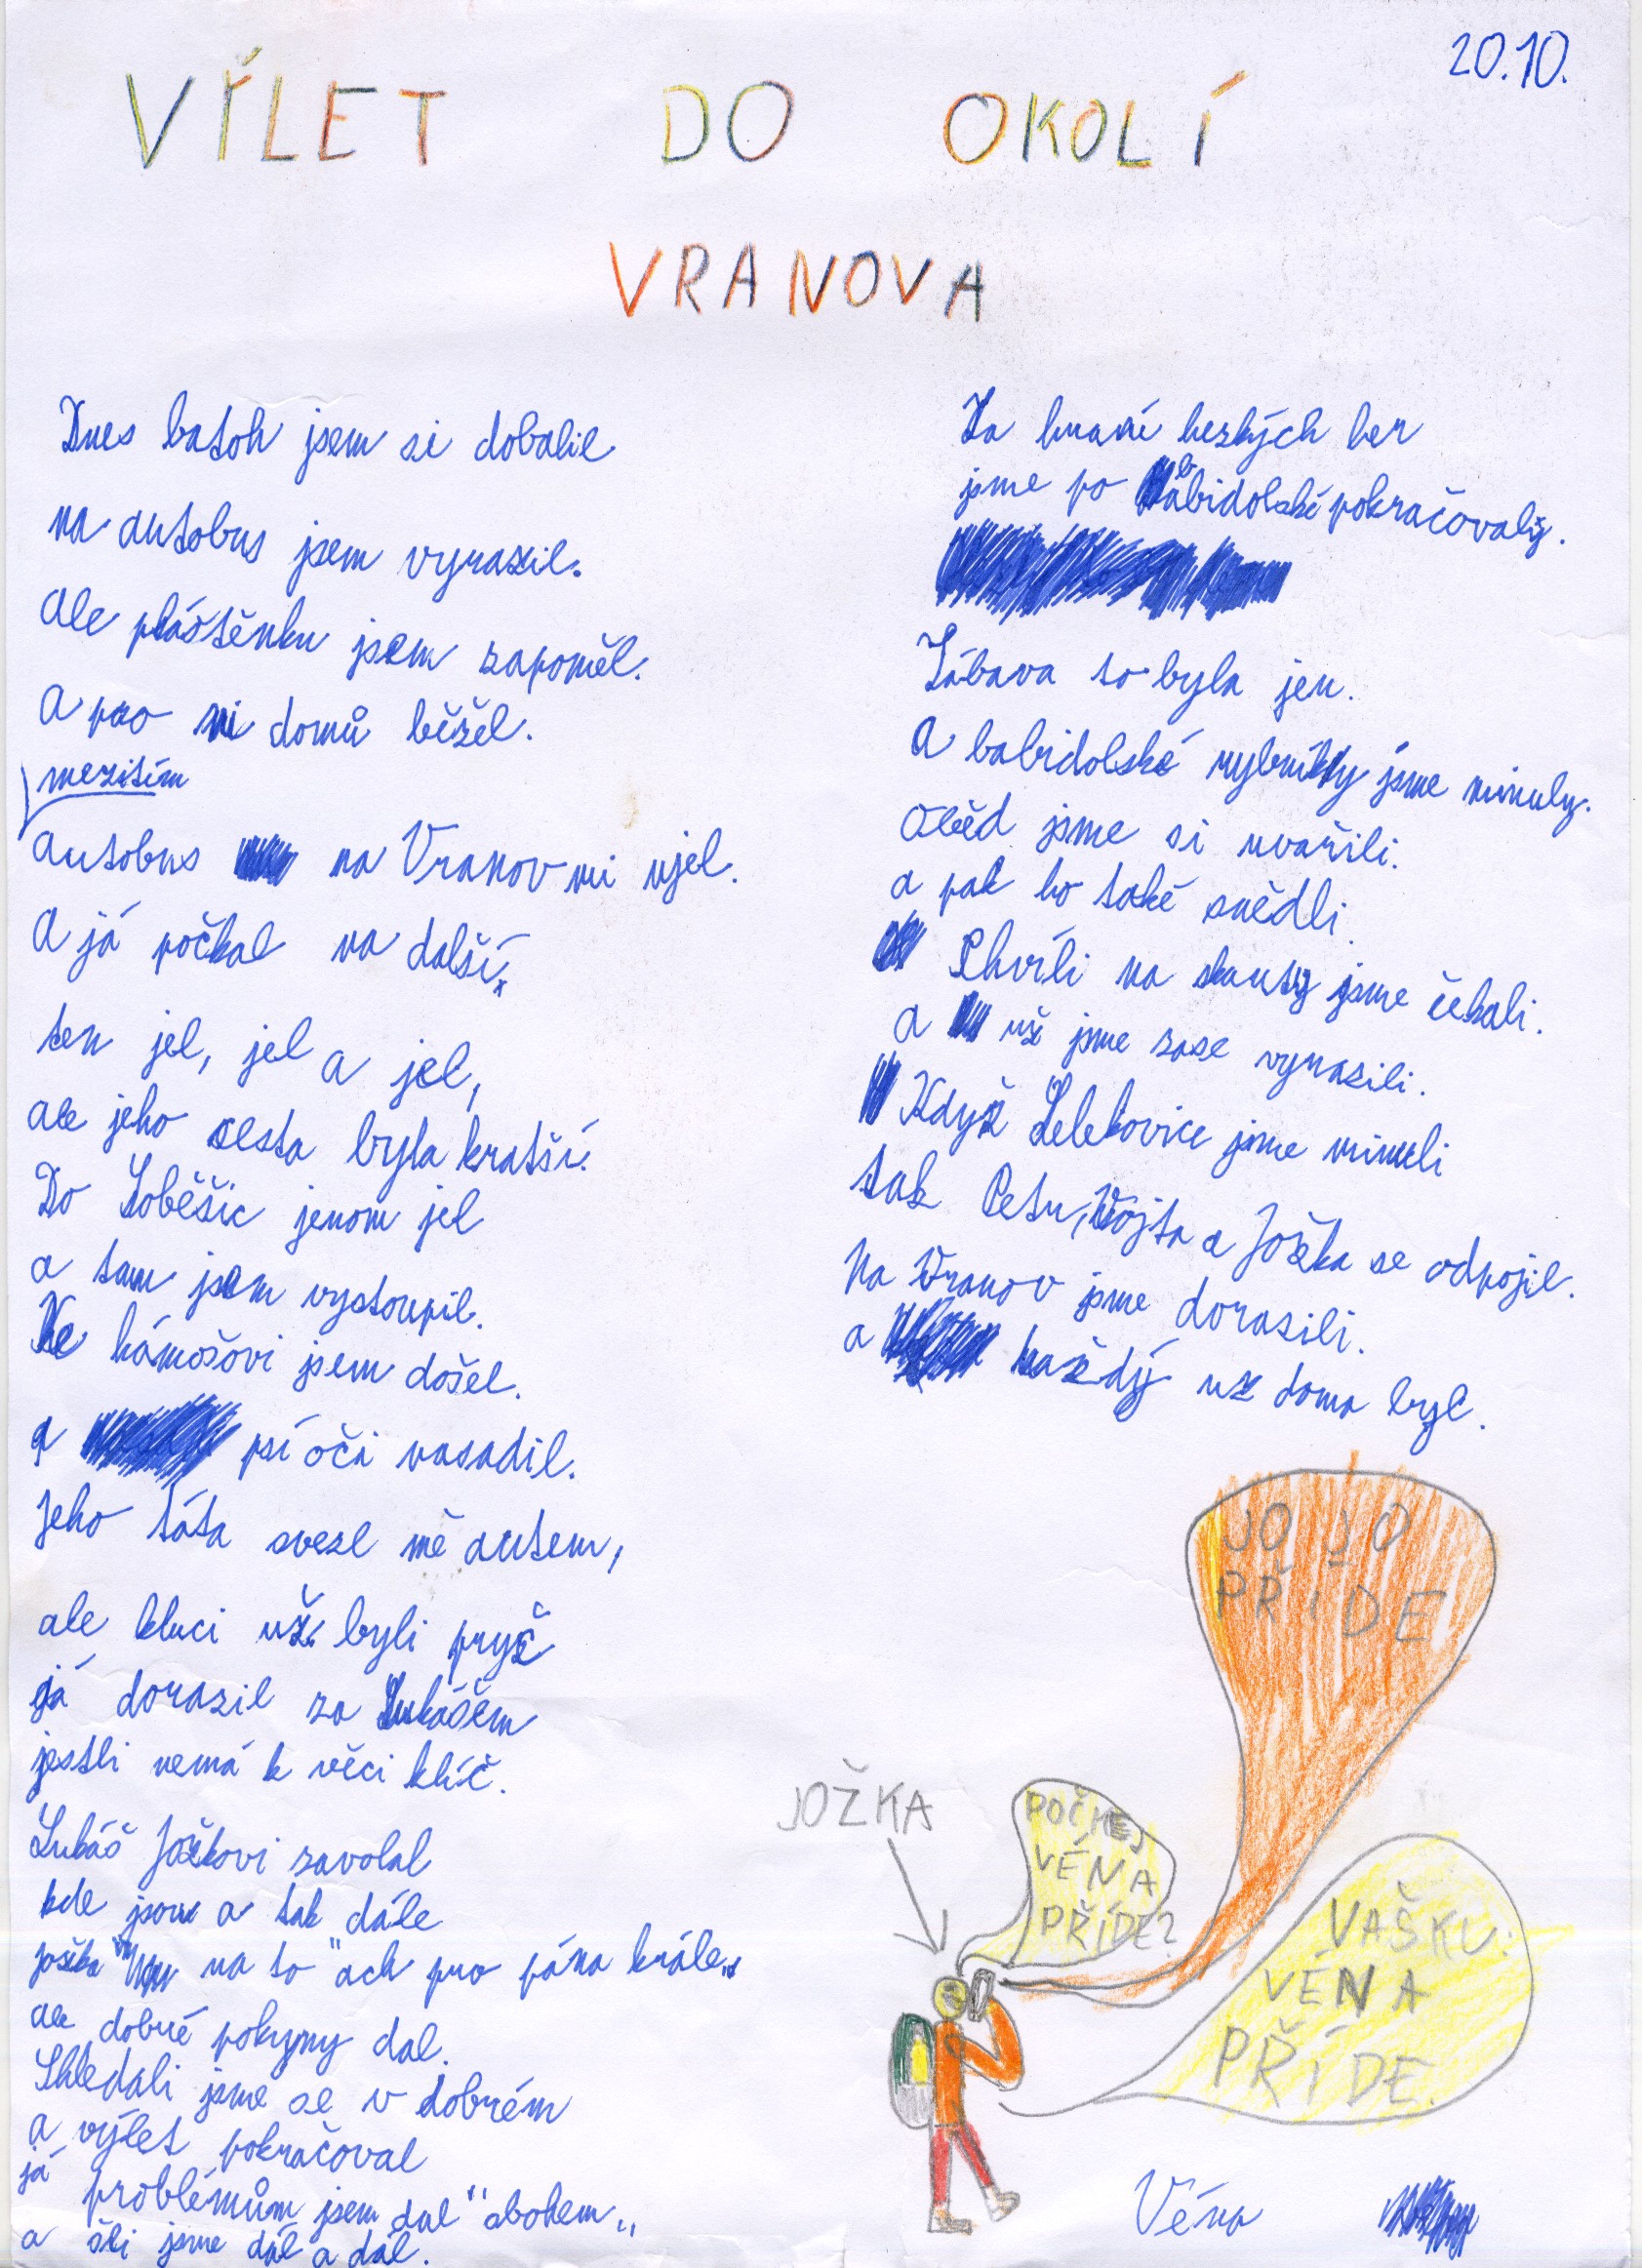 20.10.
VÝLET DO OKOLÍ
VRANOVA
Dnes batoh jsem si dobalil
na autobus jsem vyrazil.
ale pláštěnku jsem zapoměl.
A pro ni domů běžel.
mezitím
autobus na Vranov mi ujel.
A já počkal na další,
ten jel, jel a jel,
ale jeho cesta byla kratší.
Do Soběšic jenom jel
a tam jsem vystoupil.
Ke kámošovi jsem došel.
a psí oči nasadil.
Jeho táta svezl mě autem,
ale kluci už byli pryč
já dorazil za Lukášem
jestli nemá k věci klíč.
Lukáš Jožkovi zavolal
kde jsou a tak dále
Jožka na to "ach pro pána krále"
ale dobré pokyny dal.
Shledali jsme se v dobrém
a výlet pokračoval
já problémům jsem dal "sbohem"
a šli jsme dál a dál.
Za hraní hezkých her
jsme po Babidolské pokračovaly.
Zábava to byla jen.
A babidolské rybníky jsme minuly.
Oběd jsme si uvařili.
a pak ho také snědli.
Chvíli na skauty jsme čekali.
a už jsme zase vyrazili.
Když Lelekovice jsme minuli
tak Petr, Vojta a Jožka se odpojil.
Na Vranov jsme dorazili.
a každý už doma byl.
JO JO
PŘÍDE
JOŽKA
POČKEJ
VÉNA
PŘÍDE?
VAŠKU:
VÉNA
PŘÍDE.
Véna